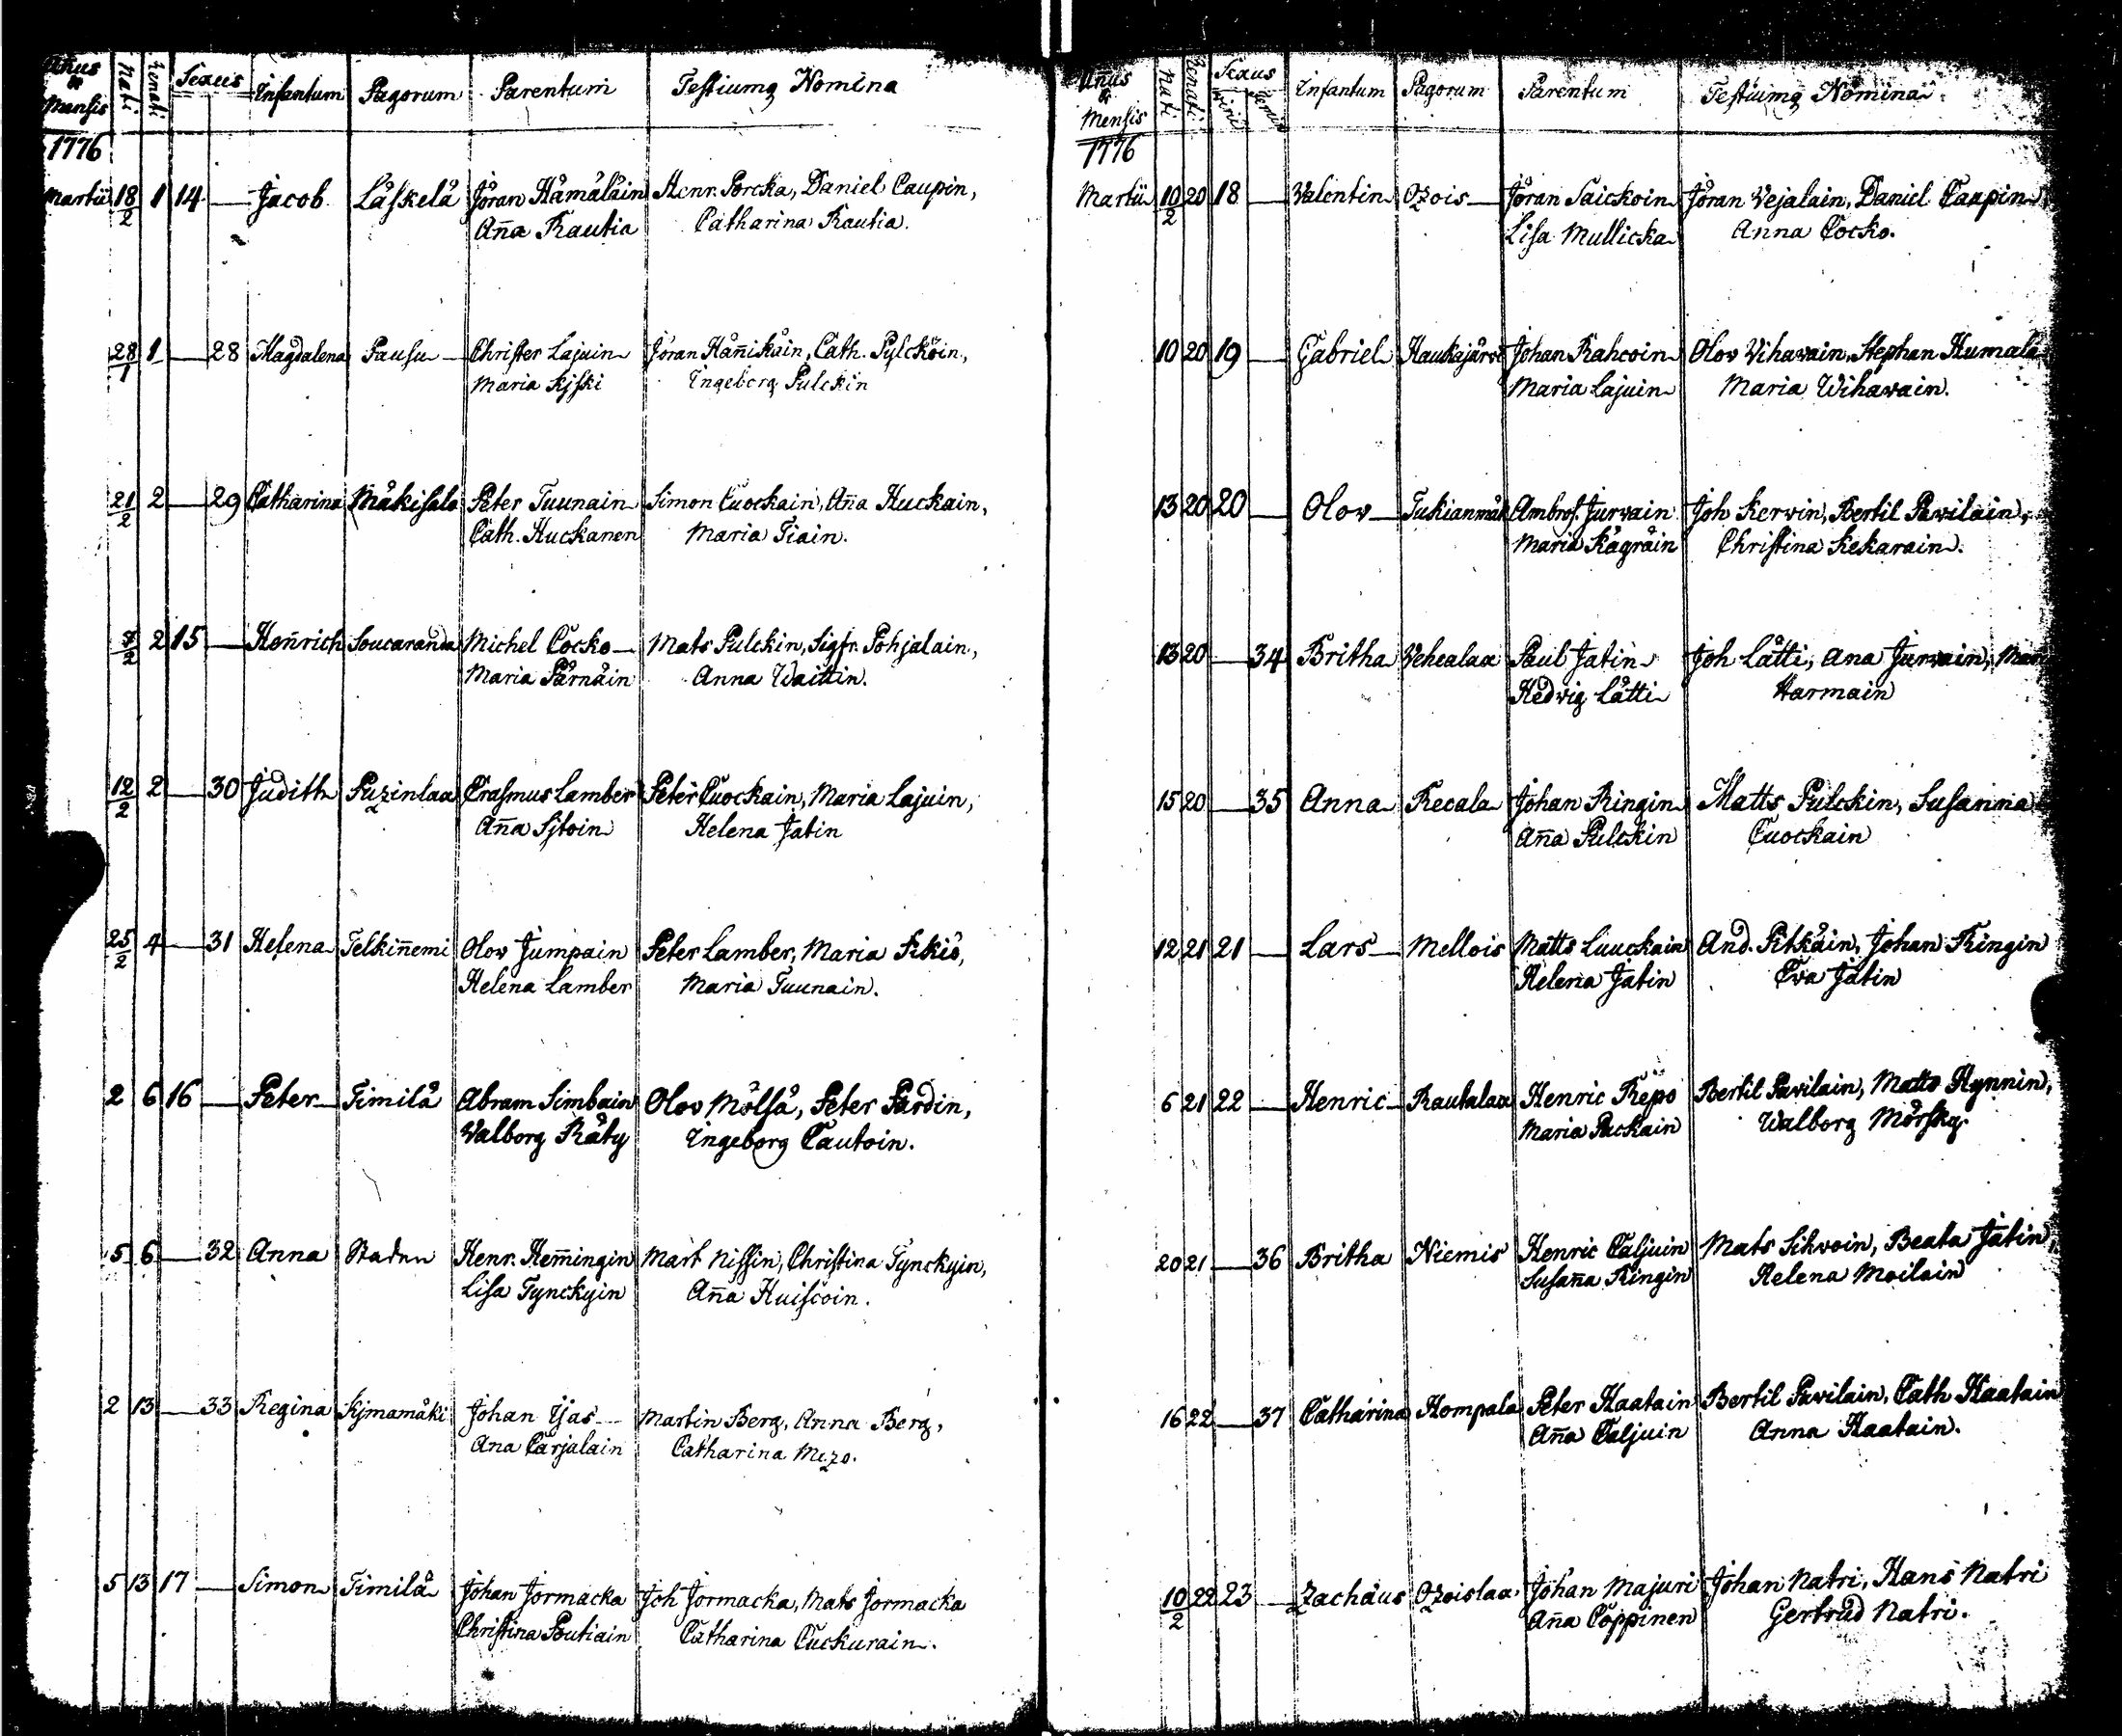 Añus & Mensis Nati Renati Sexus Infantum Pagorum Parentum Testiumq Nomina
1776
Martii 18/2 1 14 — Jacob Läskelä Jöran Hämäläin Henr. Porcka, Daniel Caupin,
Aña Rautia Catharina Rautia.
28/1 1 — 28 Magdalena Pausu Christer Lajuin Jöran Häñikäin, Cath. Pylcköin,
Maria Kjski Ingeborg Pulckin
21/2 2 — 29 Catharina Mäkisalo Peter Tuunain Simon Cuockain, Aña Huckain,
Cath. Huckanen Maria Tiain.
2 2 15 — Heñrich Soucaranda Michel Cocko Mats Pulckin, Sigfr. Pohjalain,
Maria Pärnäin Anna Waittin.
12/2 2 — 30 Judith Puzinlaa Erasmus Lamber Peter Cuockain, Maria Lajuin,
Aña Sjtoin Helena Jatin
25/2 4 — 31 Helena Telkiñemi Olov Jumpain Peter Lamber, Maria
Helena Lamber Maria Tuunain.
2 6 16 — Peter Timilä Abram Simbain Olov Mölsä, Peter Pärdin,
Valborg Räty Ingeborg Cautoin.
5 6 — 32 Anna Staden Henr. Hem̃ingin Mart Nissin, Christina Tynckyin,
Lisa Tynckyin Aña Huiscoin.
2 13 — 33 Regina Kjmamäki Johan Ijas Martin Berg, Anna Berg,
Ana Carjalain Catharina Mezo.
5 13 17 — Simon Timilä Johan Jormacka Joh Jormacka, Mats Jormacka
Christina Poutiain Catharina Cuckurain.
Añus & Mensis Nati Renati Sexus Infantum Pagorum Parentum Testiumq Nomina
1776
Martii 10/2 20 18 — Valentin Ozois Jöran Saickoin Jöran Vejalain, Daniel Caupin
Lisa Mullicka Anna Cocko.
10 20 19 — Gabriel Haukajärvi Johan Rahcoin Olov Vihavain, Stephan Humala
Maria Lajuin Maria Wihavain.
13 20 20 — Olov Tukianmäk Ambros. Jurvain Joh Kervin, Bertil Pavilain,
Maria Kägräin Christina Kekarain.
13 20 — 34 Britha Vehcalaa Paul Jatin Joh Lätti, Ana Jurvain, Mar
Hedvig Lätti Harmain
15 20 — 35 Anna Recala Johan Ringin Matts Pulckin, Susanna
Aña Pulckin Cuockain
12 21 21 — Lars Mellois Matts Luuckain And. Pitkäin, Johan Ringin
Helena Jatin Eva Jatin
6 21 22 — Henric Rautalaa Henric Repo Bertil Pavilain, Matts Hynnin,
Maria Packain Walborg Mörsky.
20 21 — 36 Britha Niemis Henric Caljuin Mats Sihvoin, Beata Jatin,
Susaña Ringin Helena Moilain
16 22 — 37 Catharina Hompala Peter Haatain Bertil Pavilain, Cath Haatain
Aña Caljuin Anna Haatain.
10/2 22 23 — Zachäus Ozoislaa Johan Majuri Johan Natri, Hans Natri
Aña Coppinen Gertrud Natri.